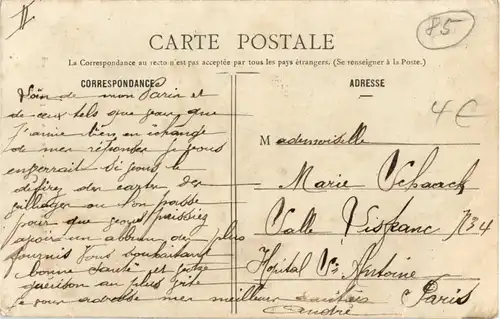 II
85
CARTE POSTALE
La Correspondance au recto n'est pas acceptée par tous les pays étrangers. (Se renseigner à la Poste.)
CORRESPONDANCE
ADRESSE
4€
Loin de mon Parin et
de ceux tels que pour que
J'aimie bien en échange
de mes réponses je vous
enverrait si vous le
désirez des cartes des
villages ou l'on passe
pour que vous puissiez
avoir un album des plus
fournis Vous souhaitant
bonne santé et votre
guérison au plus vite
je vous adresse mes meilleur amitiés
André
Mademoiselle
Marie Schaack
Salle Lisfranc N° 4
Hôpital St Antoine
Paris